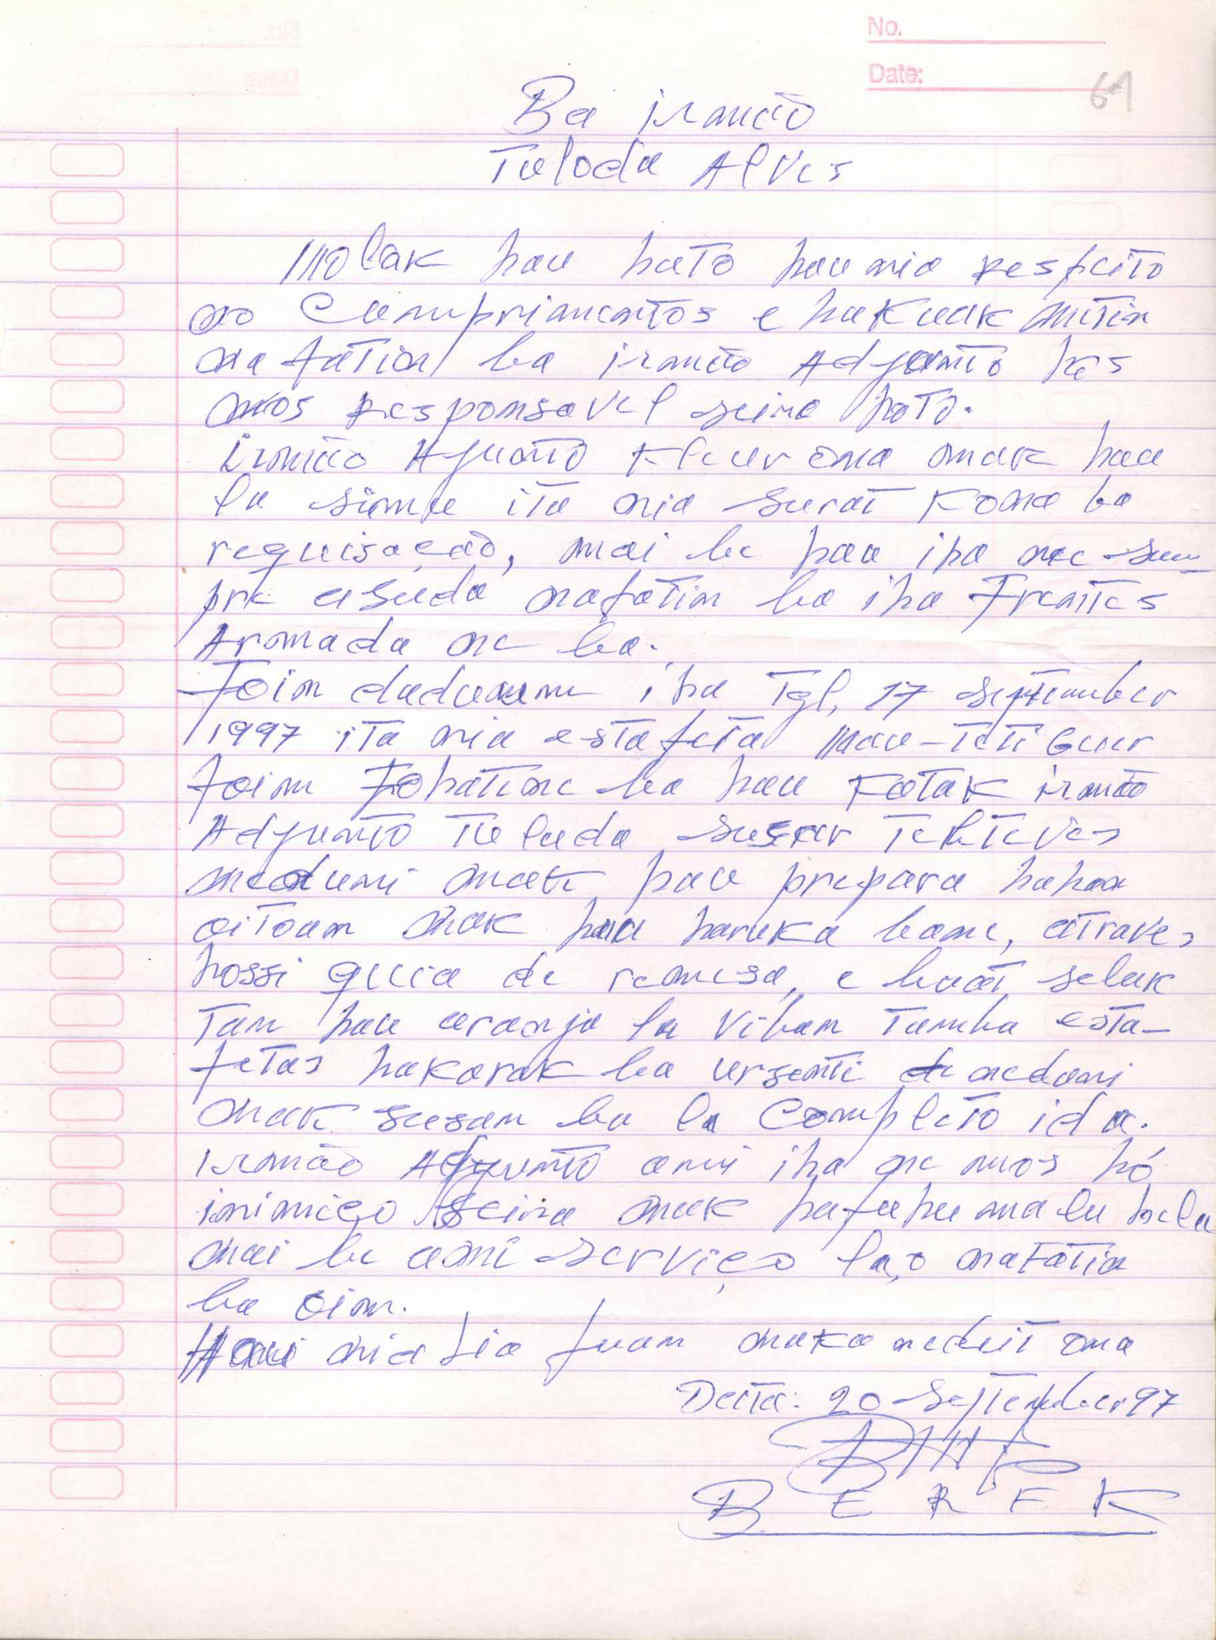 No.
Date:
61
Ba irmão
Tuloda Alves
Molak hau hato hau nia respeito
no Cumprimentos e hakuak mitin
nafatin ba irmão Adjunto hes
mos Responsavel seina hoto.
irmão Ajunto Kleur ona mak hau
la simu ita nia surat kona ba
requisação, mai be hau iha ne sem
pre asuda nafatin ba iha Frentes
Armada ne ba.
Foin dadaunn iha Tgl, 17 september
1997 ita nia estafeta Mau-Teti Guur
foin Fohatene ba hau katak irmão
Adjunto Tuluda susar tebtevs
medumi mak hau prepara hahan
oitoam mak hau haruka bame, atraves
hossi guia de remesa, e buat seluk
tan hau aranja la viban tamba esta-
fetas hakarak ba urgenti nedoni
mak susam ba la Completo ida.
irmão Adjunto ami iha ne mos hó
inimigo seina mak hafuhu malu hela
mai be ami serviço la,o nafatin
ba oin.
Hau nia lia fuan maka nedeit ona
Data: 20-September 97
BEREK